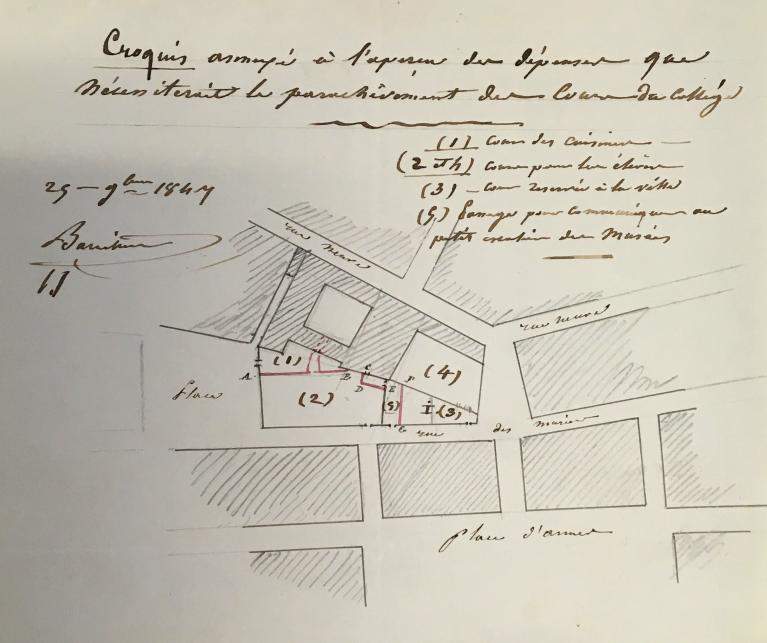 Croquis annexé à l'apercu des dépenses que
nécessiterait le parachèvement des Cours du Collège
(1) cour des cuisines
(2 et 4) cour pour les élèves
(3) - cour réservée à la ville
(5) Passage pour communiquer au
petit escalier des Musées
25 - 9bre 1847
rue neuve
rue neuve
(1)
(4)
A
B
C
D
E
F
Place
(2)
(5)
I
(3)
G
rue des
Place d'armes